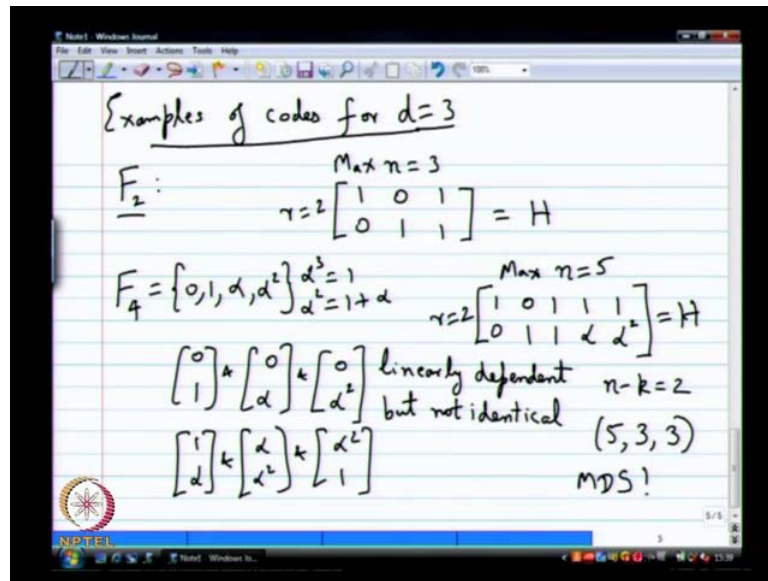 Note1 - Windows Journal
File Edit View Insert Actions Tools Help
100%
Examples of codes for d=3
F₂ :
Max n=3
r=2 [1 0 1
0 1 1] = H
F₄ = {0,1,α,α²} α³=1
α²=1+α
Max n=5
r=2 [1 0 1 1 1
0 1 1 α α²] = H
[0 1] & [0 α] & [0 α²] linearly dependent
but not identical
n-k=2
(5,3,3)
[1 α] & [α α²] & [α² 1]
MDS!
5/5
5
NPTEL
Note1 - Windows Jo...
15:39